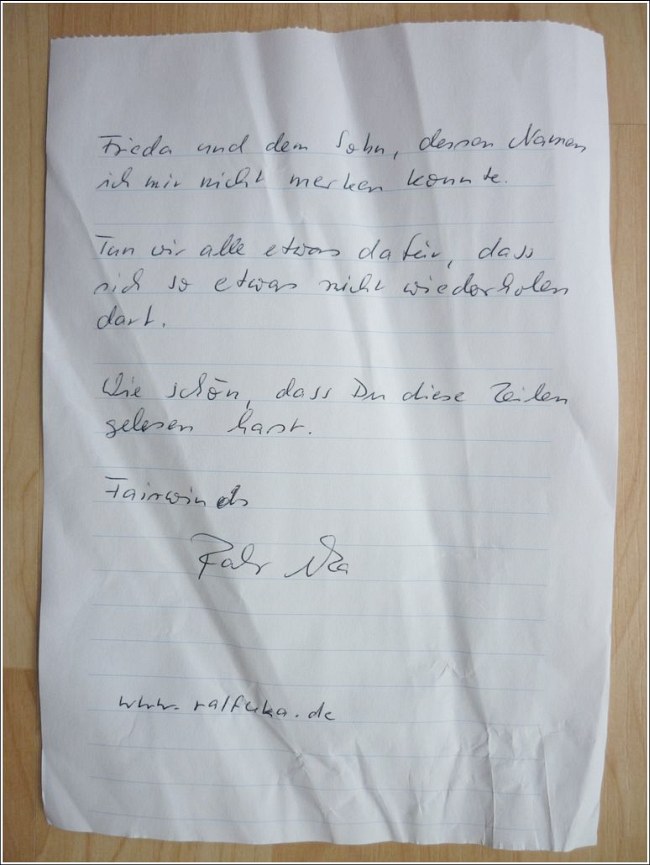 Frieda und dem Sohn, dessen Namen
ich mir nicht merken konnte.
Tun wir alle etwas dafür, dass
sich so etwas nicht wiederholen
darf.
Wie schön, dass Du diese Zeilen
gelesen hast.
Fairwinds
www.ralfuka.de